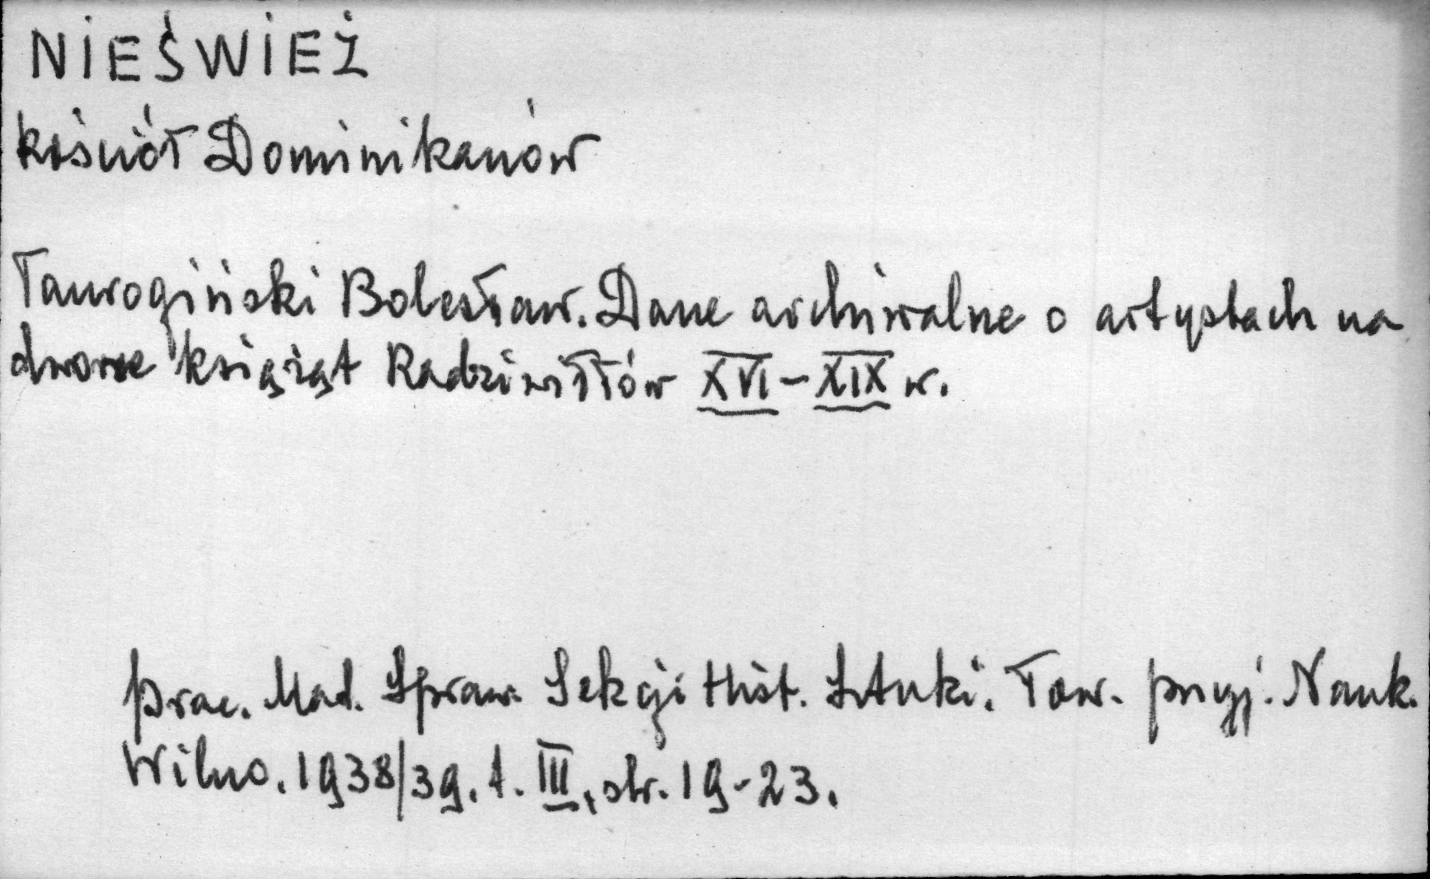 NIEŚWIEŻ
kościół Dominikanów
Taurogiński Bolesław. Dane archiwalne o artystach na
dworze książąt Radziwiłłów XVI-XIX w.
prac. Mat. Spraw. Sekcji Hist. Sztuki. Tow. przyj. Nauk.
Wilno. 1938/39. t. III, str. 19-23.